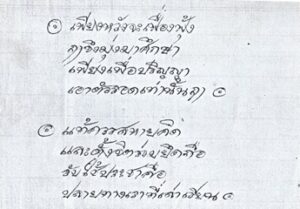 ๏ เพียงหวังจะเฟื่องฟุ้ง
ฤาจึงมุ่งมาศึกษา
เพียงเพื่อปริญญา
เอาตัวรอดเท่านั้นฤา ๏
๏ แท้ควรสหายคิด
และตั้งจิตร่วมยึดถือ
รับใช้ประชาคือ
ปลายทางเราที่เล่าเรียน ๏